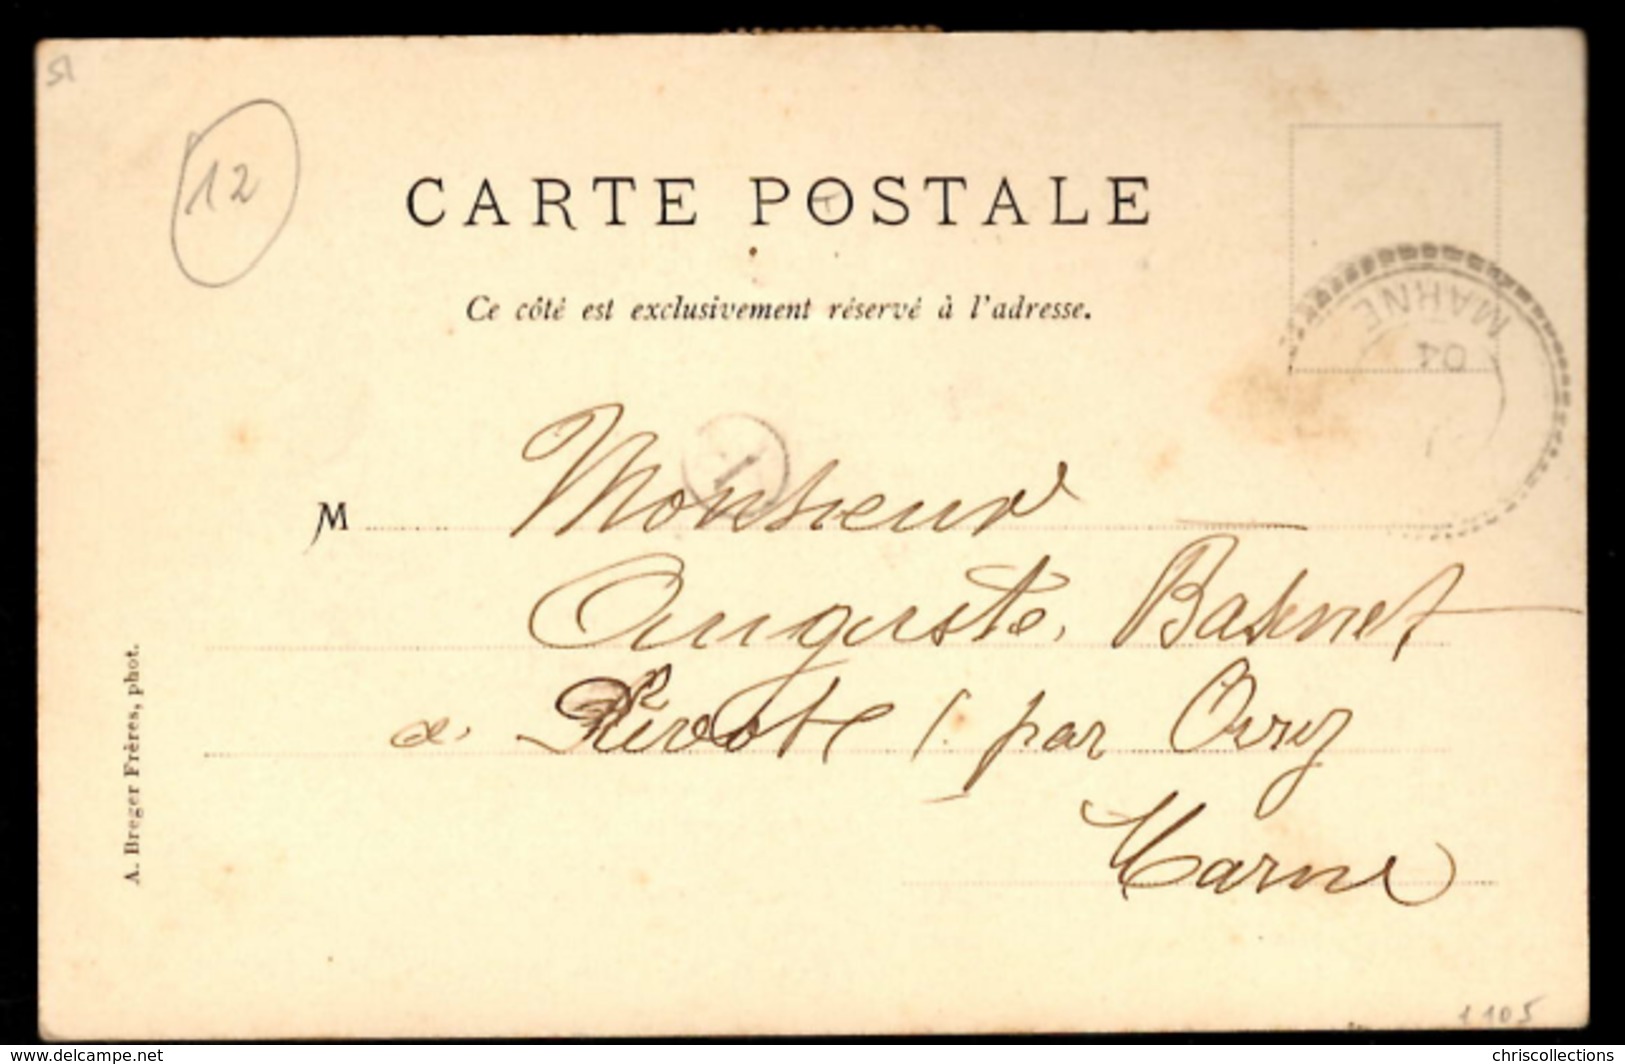 51
12
CARTE POSTALE
Ce côté est exclusivement réservé à l'adresse.
MARNE
04
M Monsieur
Auguste Basnet
a. Pévote par Orry
Marne
A. Breger Frères, phot.
1105
www.delcampe.net
chriscollections